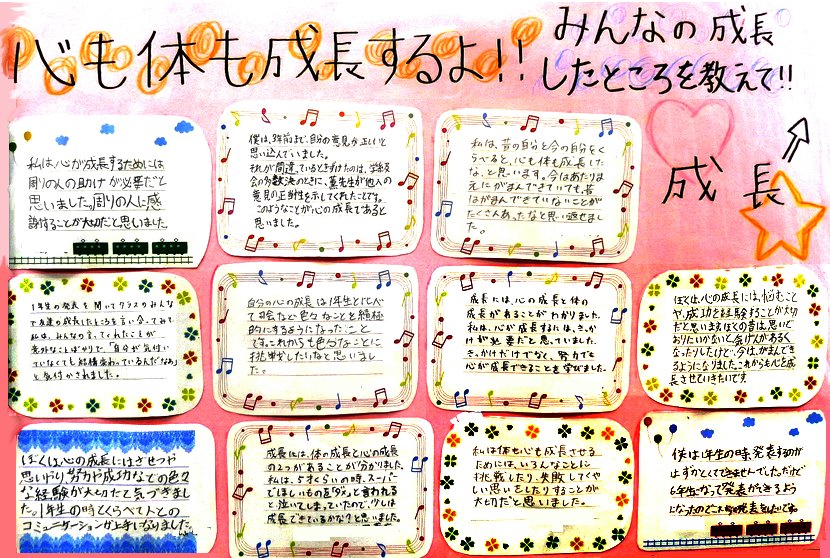 心も体も成長するよ!!
みんなの成長
したところを教えて!!
成長
私は、心が成長するためには
周りの人の助けが必要だと
思いました。周りの人に感
謝することが大切だと思いました
僕は、3年前まで、自分の意見が正しいと
思い込んでいました。
それが間違っているときづけたのは、学級
会の多数決のときに、先生が他人の
意見の正当性を示してくれたことです。
このようなことが心の成長であると
思いました。
私は、昔の自分と今の自分をく
らべると、心も体も成長した
な、と思います。今はあたりま
えにがまんできていても、昔
はがまんできていないことが
たくさんあったなと思い返せまし
た。
1年生の発表を聞いてクラスのみんな
で友達の成長したところを言い合ってみて
私は、みんなの言ってくれたことが
意外なことばかりで、「自分が気付い
ていなくても結構変わっているんだなあ」
と気付かされました。
自分の心の成長は1年生と比べて
司会など色々なことを積極
的にするようになったこと
です。これからも色々なことに
挑戦したいなと思いまし
た。
成長には、心の成長と体の
成長があることがわかりました。
私は、心が成長するには、きっか
けが必要だと思っていました。
きっかけだけでなく、努力でも
心が成長できることを学びました。
ぼくは、心の成長には、悩むこと
や、成功を経験することが大切
だと思います。ぼくの昔は、思いど
おりにいかないと、会げんがあるく
なったりしたけど、今は、がまんでき
るようになりました。これからも心を成
長させていきたいです。
ぼくは心の成長にはざせつや
思いやり、努力や成功などの色々
な経験が大切だと気づきまし
た。1年生の時とくらべて人との
コミュニケーションが上手になりました。
成長には、体の成長と心の成長
の2つがあることが分かりました。
私は、5才くらいの時、スーパー
でほしいものを「ダメ。」と言われる
と、泣いてしまっていたので、少しは
成長できているかな?と思いました。
私は体も心も成長させる
ためには、いろんなことに
挑戦したり、失敗してくや
しい思いをしたりすることが
大切だと思いました。
僕は1年生の時、発表するのが
はずかしくてできませんでした。だけど
6年生になって発表ができるよう
になったので